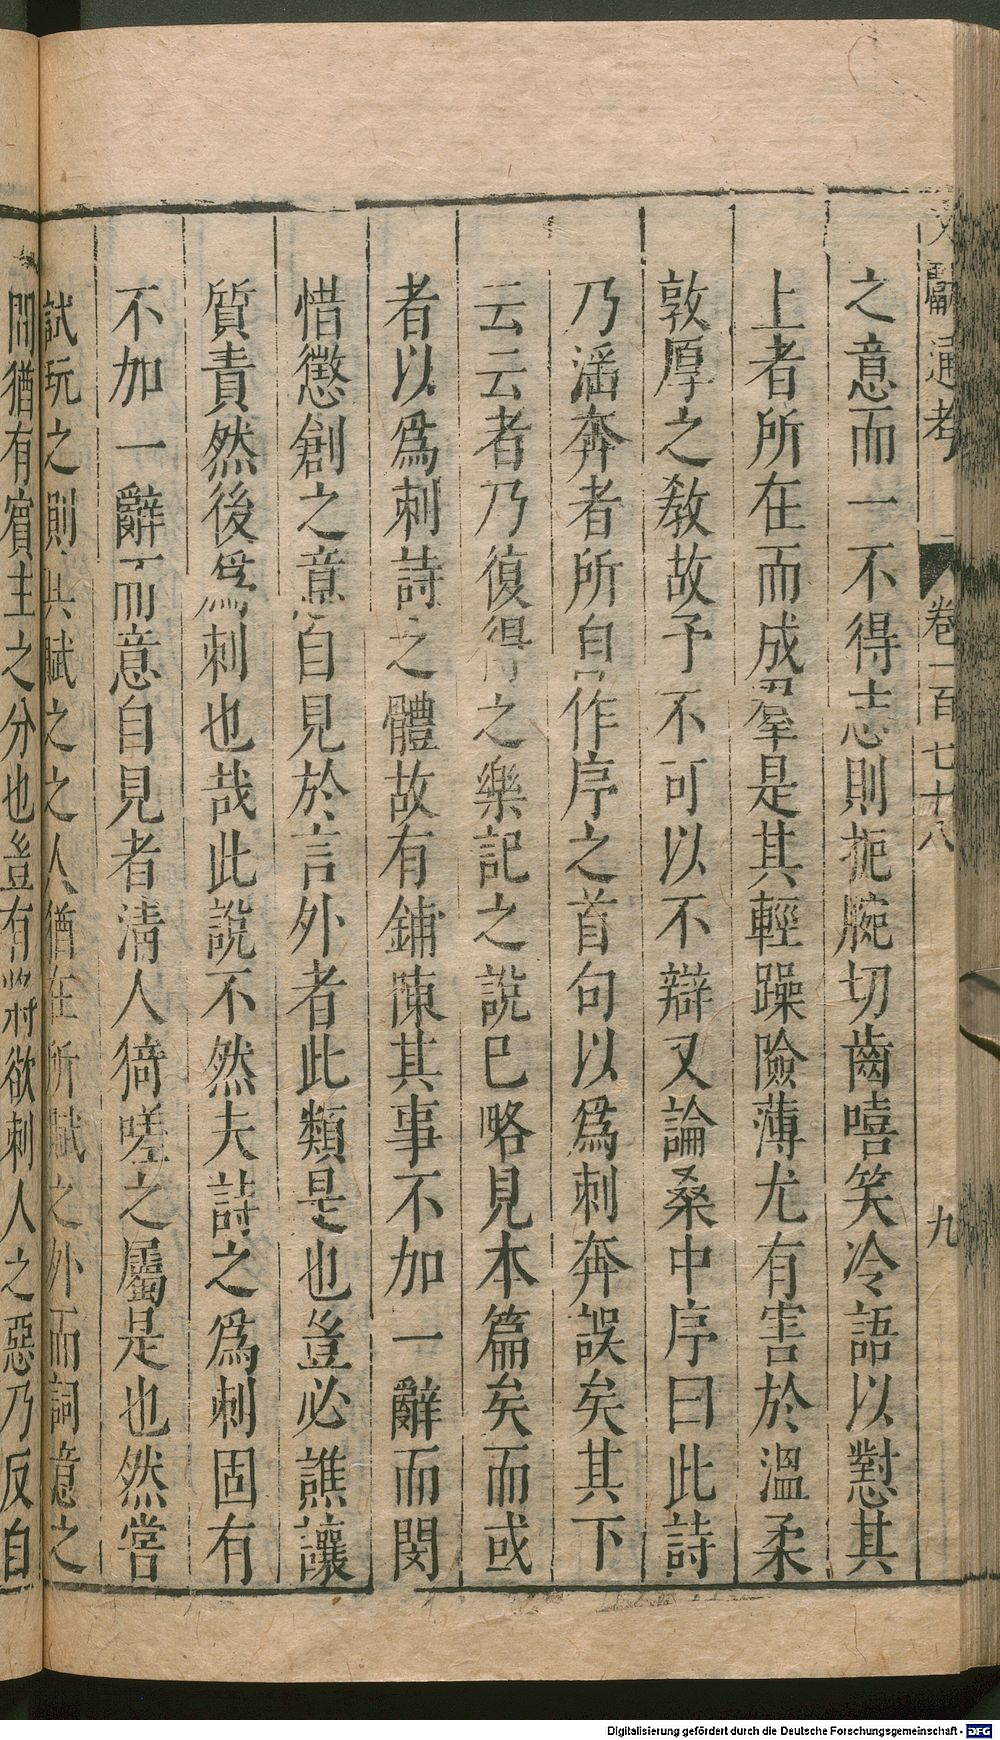 文獻通考 卷一百七十八 九
之意而一不得志則扼腕切齒嘻笑冷語以懟其
上者所在而成羣是其輕躁險薄尤有害於溫柔
敦厚之敎故予不可以不辯又論桑中序曰此詩
乃淫奔者所自作序之首句以爲刺奔誤矣其下
云云者乃復得之樂記之說已略見本篇矣而或
者以爲刺詩之體故有鋪陳其事不加一辭而閔
惜懲創之意自見於言外者此類是也豈必譙讓
質責然後爲刺也哉此說不然夫詩之爲刺固有
不加一辭而意自見者淸人猗嗟之屬是也然嘗
試玩之則其賦之之人猶在所賦之外而詞意之
間猶有賓主之分也豈有將欲刺人之惡乃反自
Digitalisierung gefördert durch die Deutsche Forschungsgemeinschaft - DFG